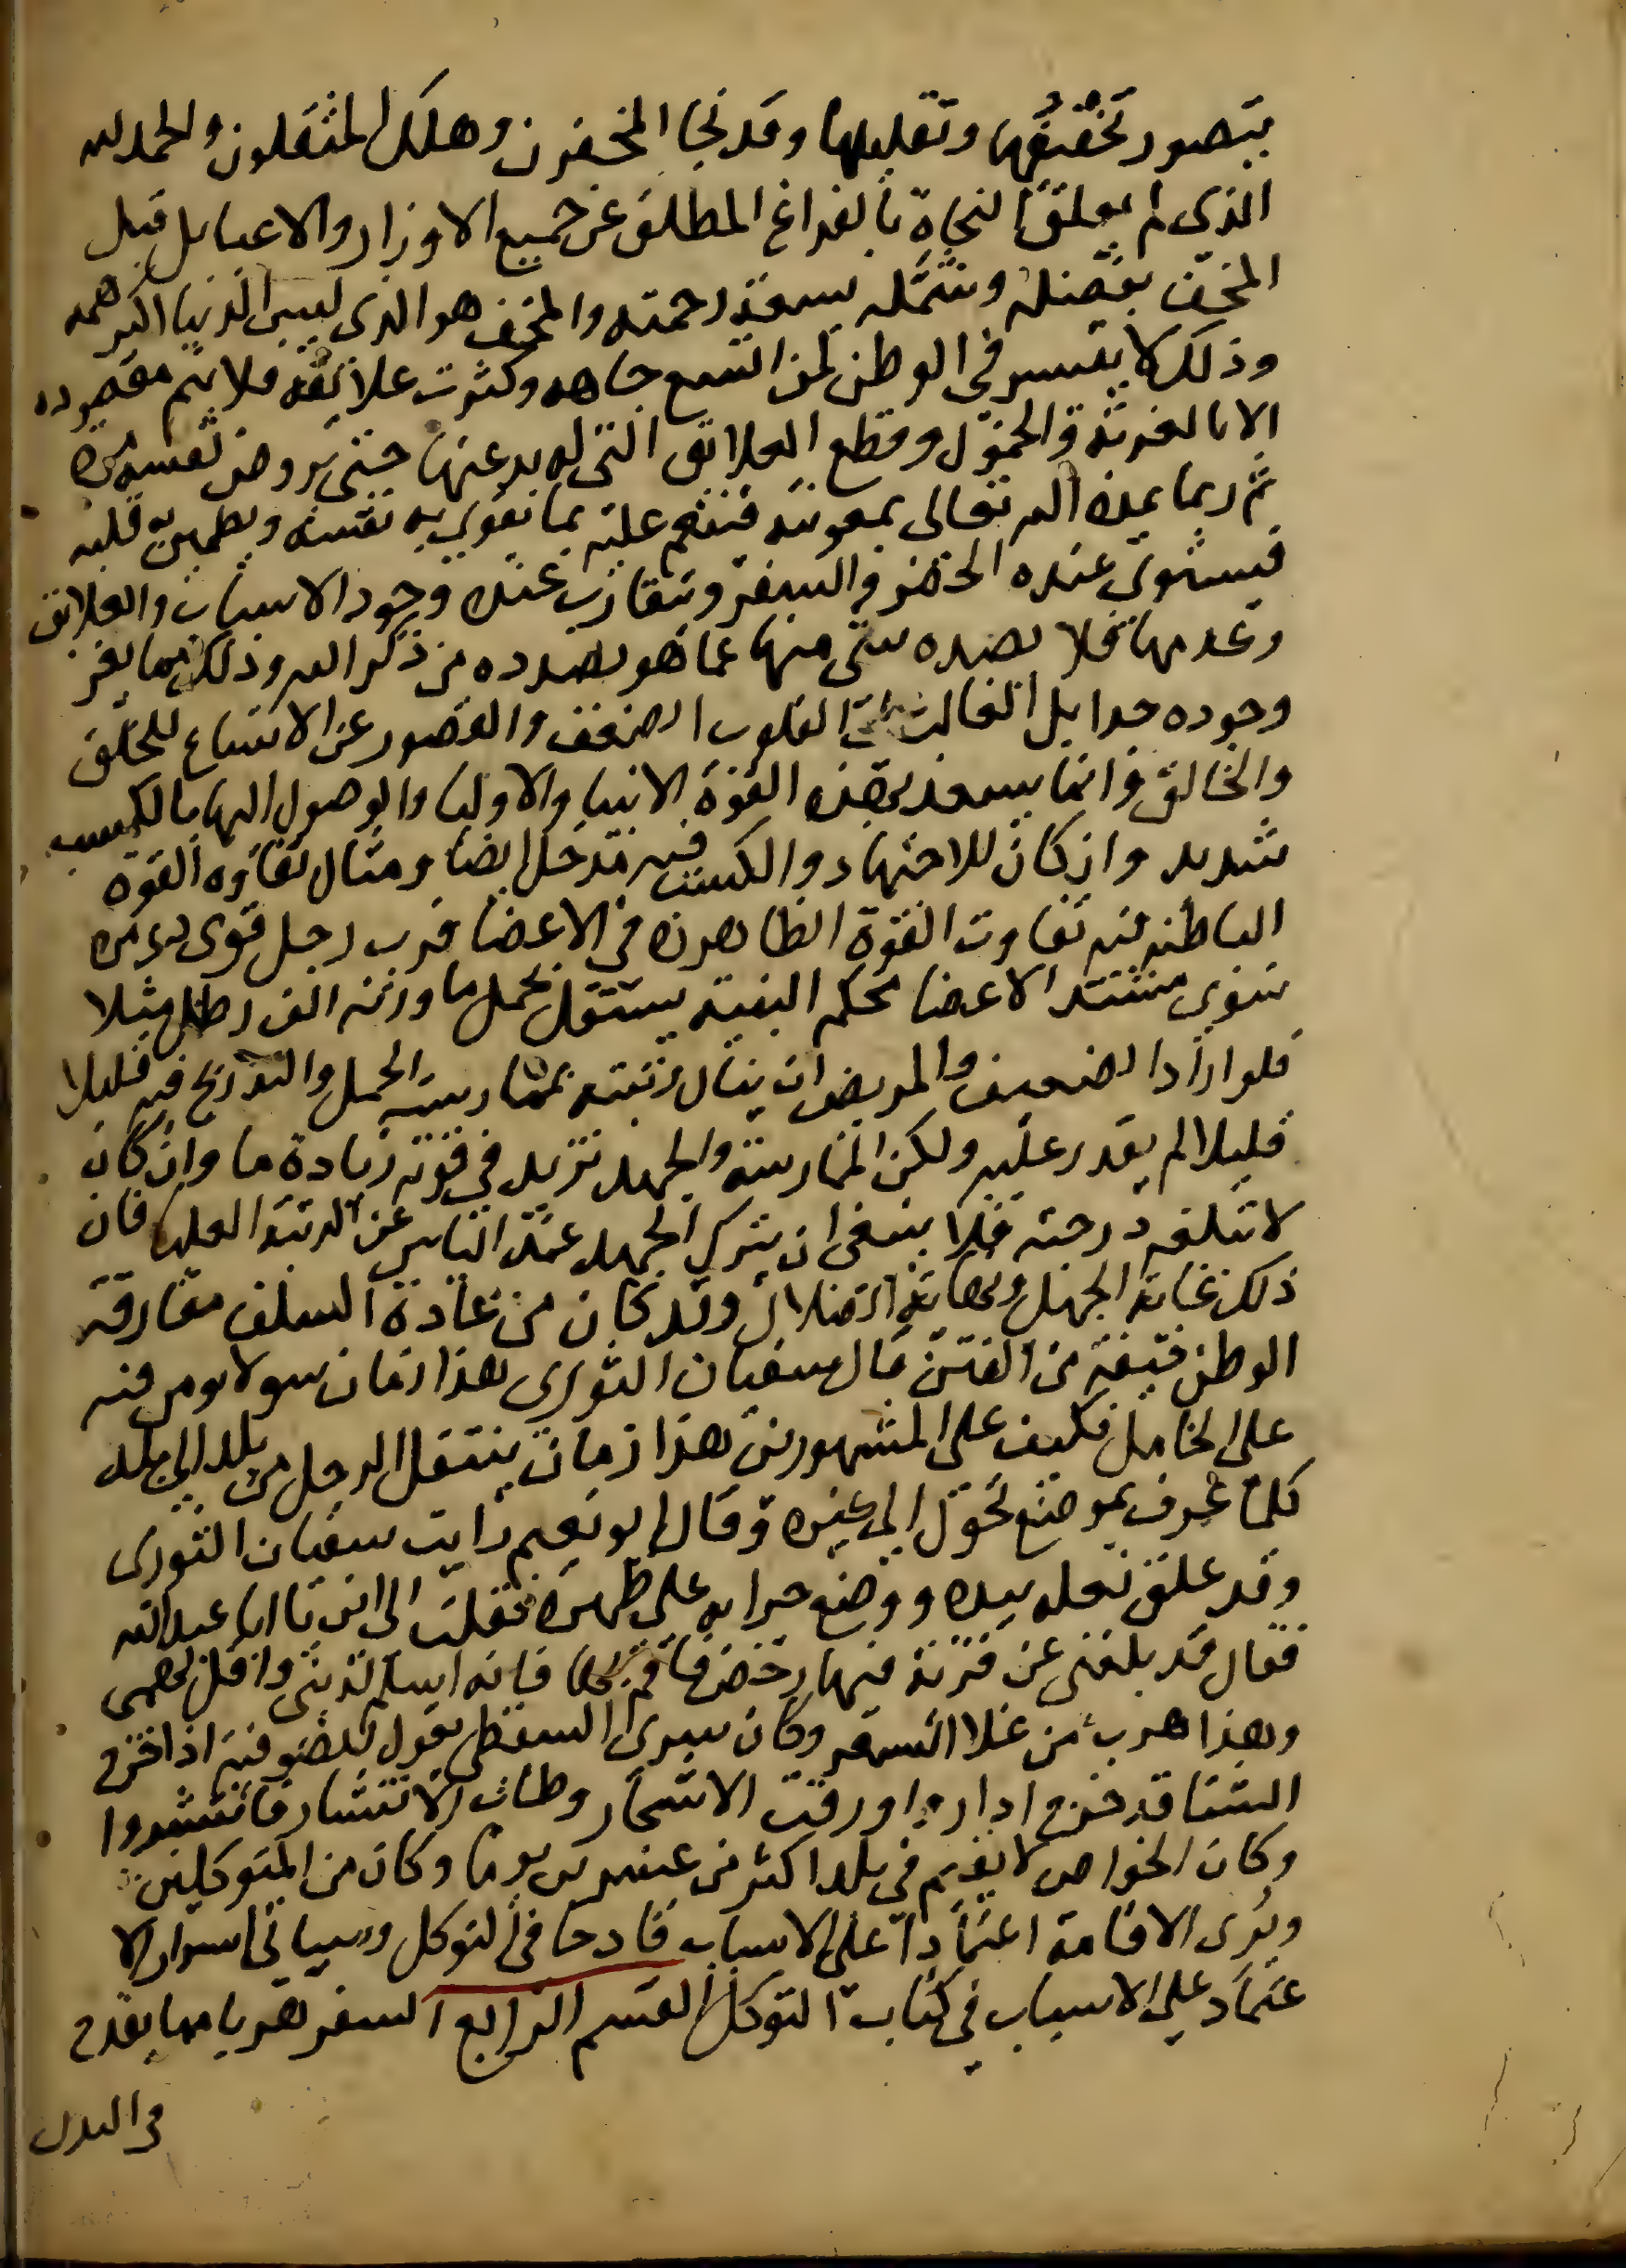 يتصور تخفيفها وتقليلها وقد نجا المخفون وهلك المثقلون والحمد لله
الذي لم يعلق النجاة بالفراغ المطلق عن جميع الاوزار والاعبا بل قبل
المخف بفضله وشمله بسعة رحمته والمخف هو الذي ليس الدنيا اكبر همه
وذلك لا يتيسر في الوطن لمن اتسع جاهه وكثرت علايقه فلا يتم مقصوده
الا بالغربة والخمول وقطع العلايق التي لا بد عنها حتى يروض نفسه مدة
ثم ربما يمده الله تعالى بمعونته فينعم عليه بما يقوي به نفسه ويطمئن قلبه
فيستوي عنده الحضر والسفر ويتقارب عنده وجود الاسباب والعلايق
وعدمها فلا يصده شي منها عما هو بصدده من ذكر الله وذلك مما يعز
وجوده جدا بل الغالب على القلوب الضعف والقصور عن الاتساع للخلق
والخالق وانما يسعد بهذه القوة الانبيا والاوليا والوصول اليها بالكسب
شديد وان كان للاجتهاد والكسب فيه مدخل ايضا ومثال تفاوه القوة
الباطنه فيه تفاوت القوة الظاهره في الاعضا فرب رجل قوي ذي مره
سوي مشتد الاعضا محكم البنية يستقل بحمل ما وزنه الف رطل مثلا
فلو اراد الضعيف والمريض ان ينال رتبته بممارسة الحمل والتدريج فيه قليلا
قليلا لم يقدر عليه ولكن الممارسة والجهد تزيد في قوته زيادة ما وان كان
لا تبلغه درجته فلا ينبغي ان يترك الجهد عند الياس عن الرتبة العليا فان
ذلك غاية الجهل ونهاية الضلال وقد كان من عادة السلف مفارقة
الوطن خيفة من الفتن قال سفيان الثوري هذا زمان سو لا يومن فيه
على الخامل فكيف على المشهورين هذا زمان ينتقل الرجل من بلد الى بلد
كلما عرف بموضع تحول الى غيره وقال ابو نعيم رايت سفيان الثوري
وقد علق نعله بيده ووضع جرابه على ظهره فقلت الى اين يا ابا عبد الله
فقال قد بلغني عن قرية فيها رخص فاقم بها فانه اسلم لدينك واقل لهمي
وهذا هرب من غلا السعر وكان سري السقطي يقول للصوفية اذا خرج
الشتا قد خرج اداره اورقت الاشجار وطاب الانتشار فانتشروا
وكان الخواص لا يقيم في بلد اكثر من عشرين يوما وكان من المتوكلين
ويرى الاقامة اعتمادا على الاسباب قادحا في التوكل وسياتي اسرار الا
عتماد على الاسباب في كتاب التوكل القسم الرابع السفر هربا مما يقدح
في البدن